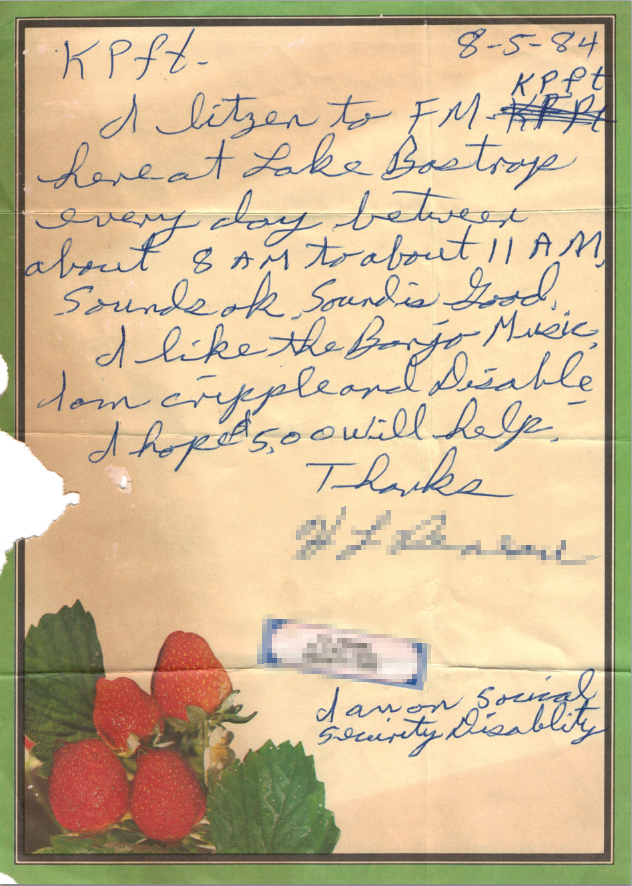 KPft- 8-5-84
KPft
I litzen to FM-KPPt
here at Lake Bastrop
every day between
about 8 AM to about 11 AM,
Sounds ok. Sound is Good.
I like the Banjo Music,
I am cripple and Disable
I hope $5.00 will help.
Thanks
I am on Social
Security Disablity